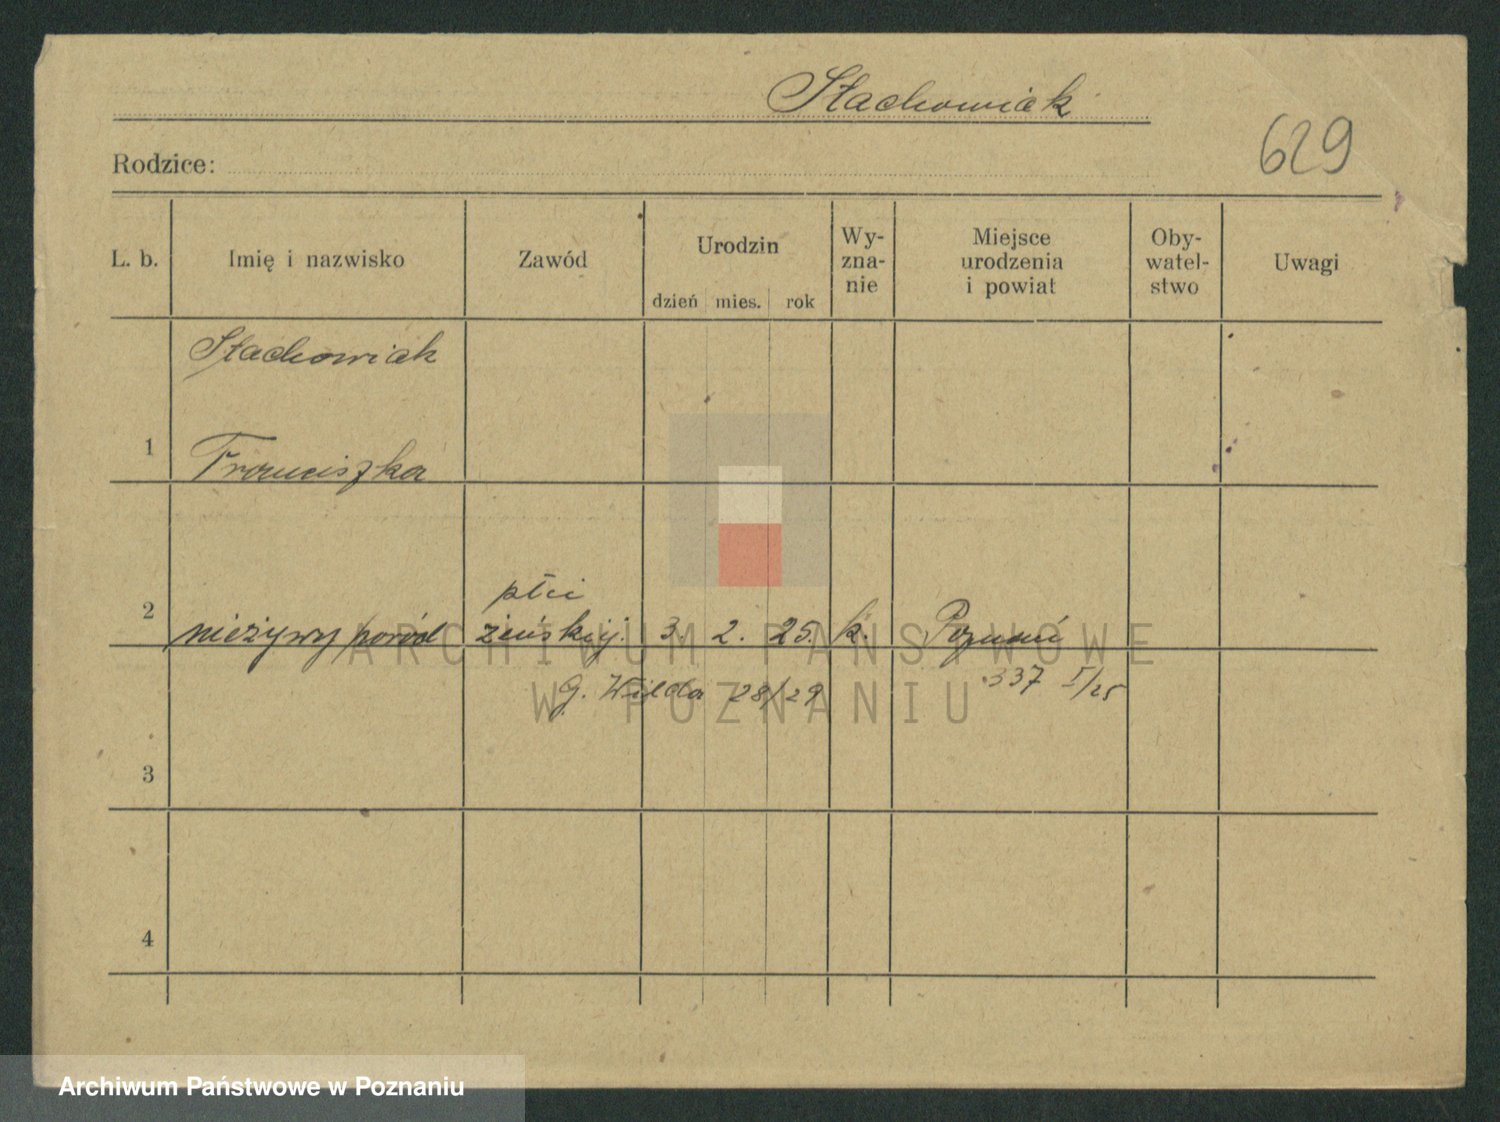 Stachowiak
629
Rodzice:
L. b.
Imię i nazwisko
Zawód
Urodzin
dzień mies. rok
Wy-
zna-
nie
Miejsce
urodzenia
i powiat
Oby-
watel-
stwo
Uwagi
1
Stachowiak
Franciszka
2
nieżywy poród
płci
żeńskiej.
3. 2. 25.
k.
Poznań
G. Wilda 28/29
337 I/25
3
4
ARCHIWUM PAŃSTWOWE
W POZNANIU
Archiwum Państwowe w Poznaniu